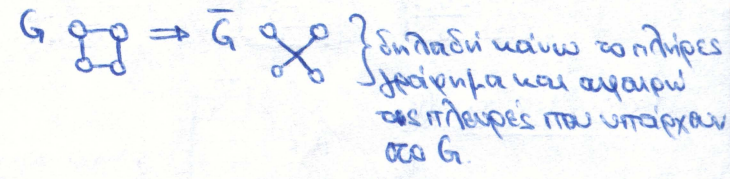 G ⇒ G̅ } δηλαδή κάνω το πλήρες
γράφημα και αφαιρώ
τις πλευρές που υπάρχουν
στο G.